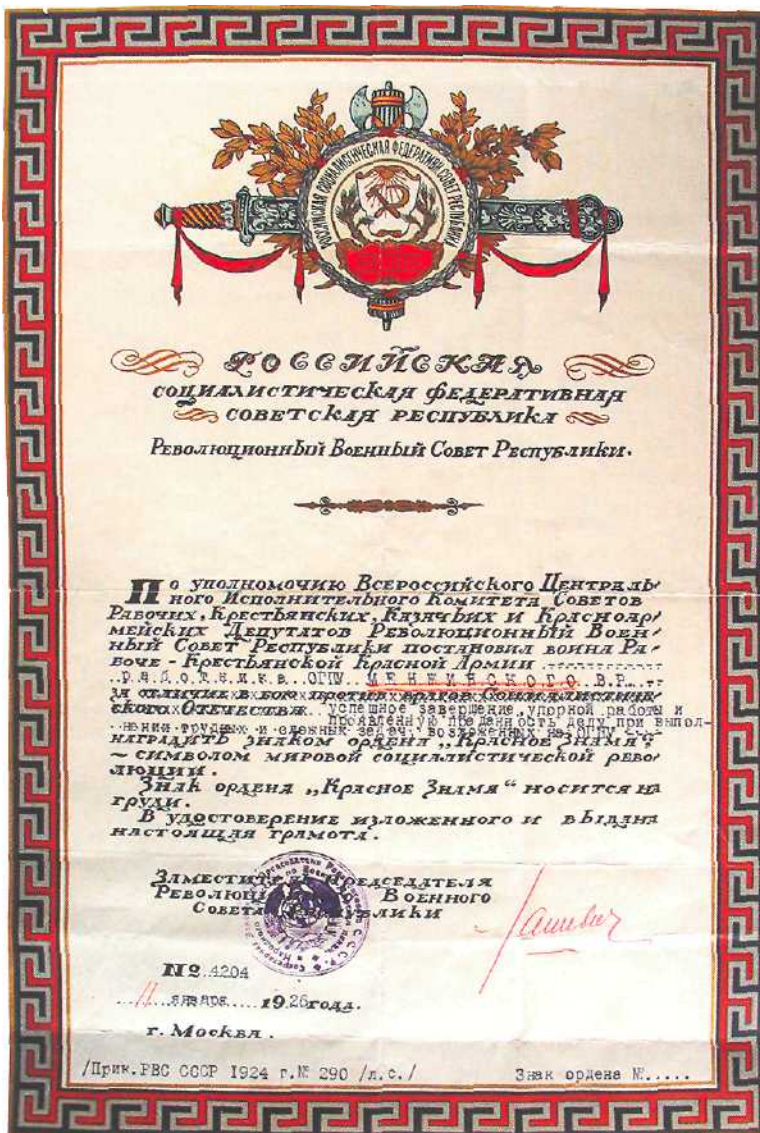 РОССИЙСКАЯ СОЦИАЛИСТИЧЕСКАЯ ФЕДЕРАТИВН. СОВЕТ. РЕСПУБЛИКА
РОССИЙСКАЯ
СОЦИАЛИСТИЧЕСКАЯ ФЕДЕРАТИВНАЯ
СОВЕТСКАЯ РЕСПУБЛИКА
РЕВОЛЮЦИОННЫЙ ВОЕННЫЙ СОВЕТ РЕСПУБЛИКИ.
По уполномочию Всероссийского Централь-
ного Исполнительного Комитета Советов
Рабочих, Крестьянских, Казачьих и Красноар-
мейских Депутатов Революционный Воен-
ный Совет Республики постановил воина Ра-
боче-Крестьянской Красной Армии
работника ОГПУ МЕНЖИНСКОГО В.Р.
за отличие в бою против врагов Социалистиче-
ского Отечества успешное завершение упорной работы и
проявленную преданность делу при выпол-
нении трудных и сложных задач, возложенных на ОГПУ
наградить знаком ордена „Красное Знамя",
~ символом мировой социалистической рево-
люции.
Знак ордена „Красное Знамя" носится на
груди.
В удостоверение изложенного и выдана
настоящая грамота.
Заместитель Председателя
Революционного Военного
Совета Республики
№ 4204
11 января 1926 года.
г. Москва.
/Прик.РВС СССР 1924 г.№ 290 /л.с./ Знак ордена №.....